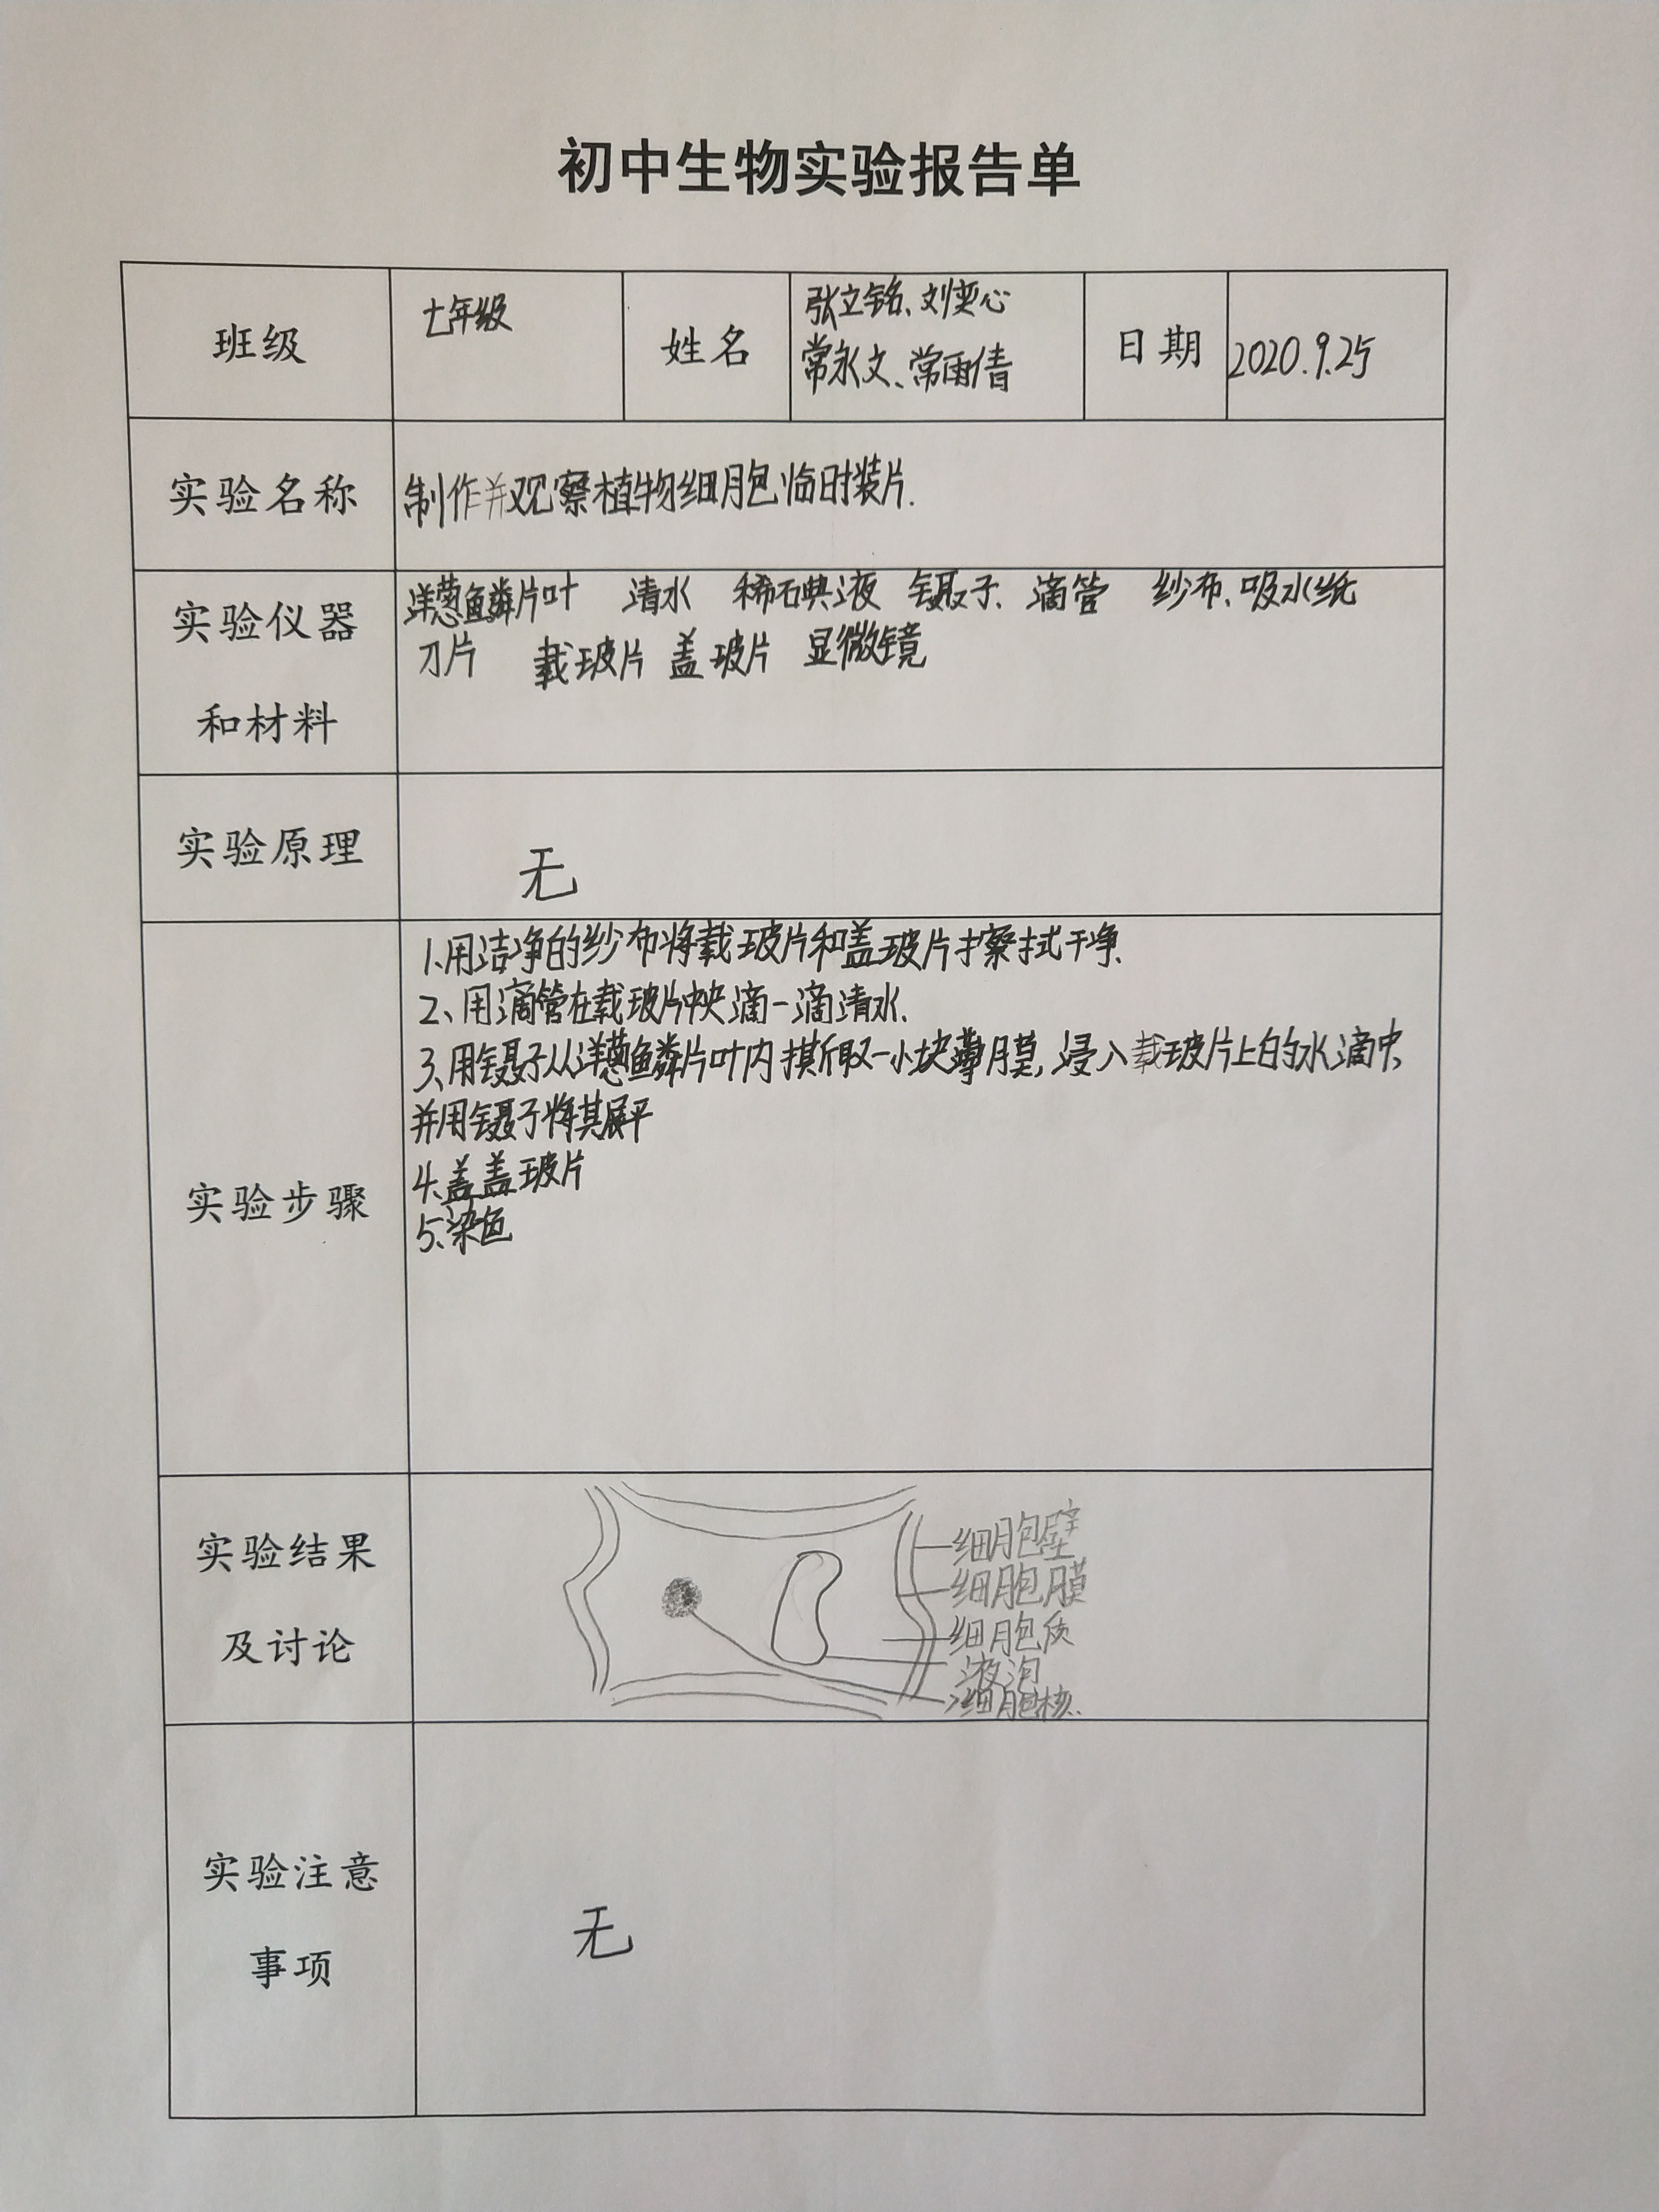 初中生物实验报告单
班级 七年级 姓名 张立铭、刘奕心 日期 2020.9.25
常永文、常雨倩
实验名称 制作并观察植物细胞临时装片.
实验仪器 洋葱鳞片叶 清水 稀碘液 镊子、滴管 纱布、吸水纸
刀片 载玻片 盖玻片 显微镜
和材料
实验原理 无
1、用洁净的纱布将载玻片和盖玻片擦拭干净.
2、用滴管在载玻片中央滴一滴清水.
3、用镊子从洋葱鳞片叶内撕取一小块薄膜,浸入载玻片上的水滴中,
并用镊子将其展平
4、盖盖玻片
实验步骤
5、染色
实验结果
及讨论
细胞壁
细胞膜
细胞质
液泡
细胞核.
实验注意
事项
无